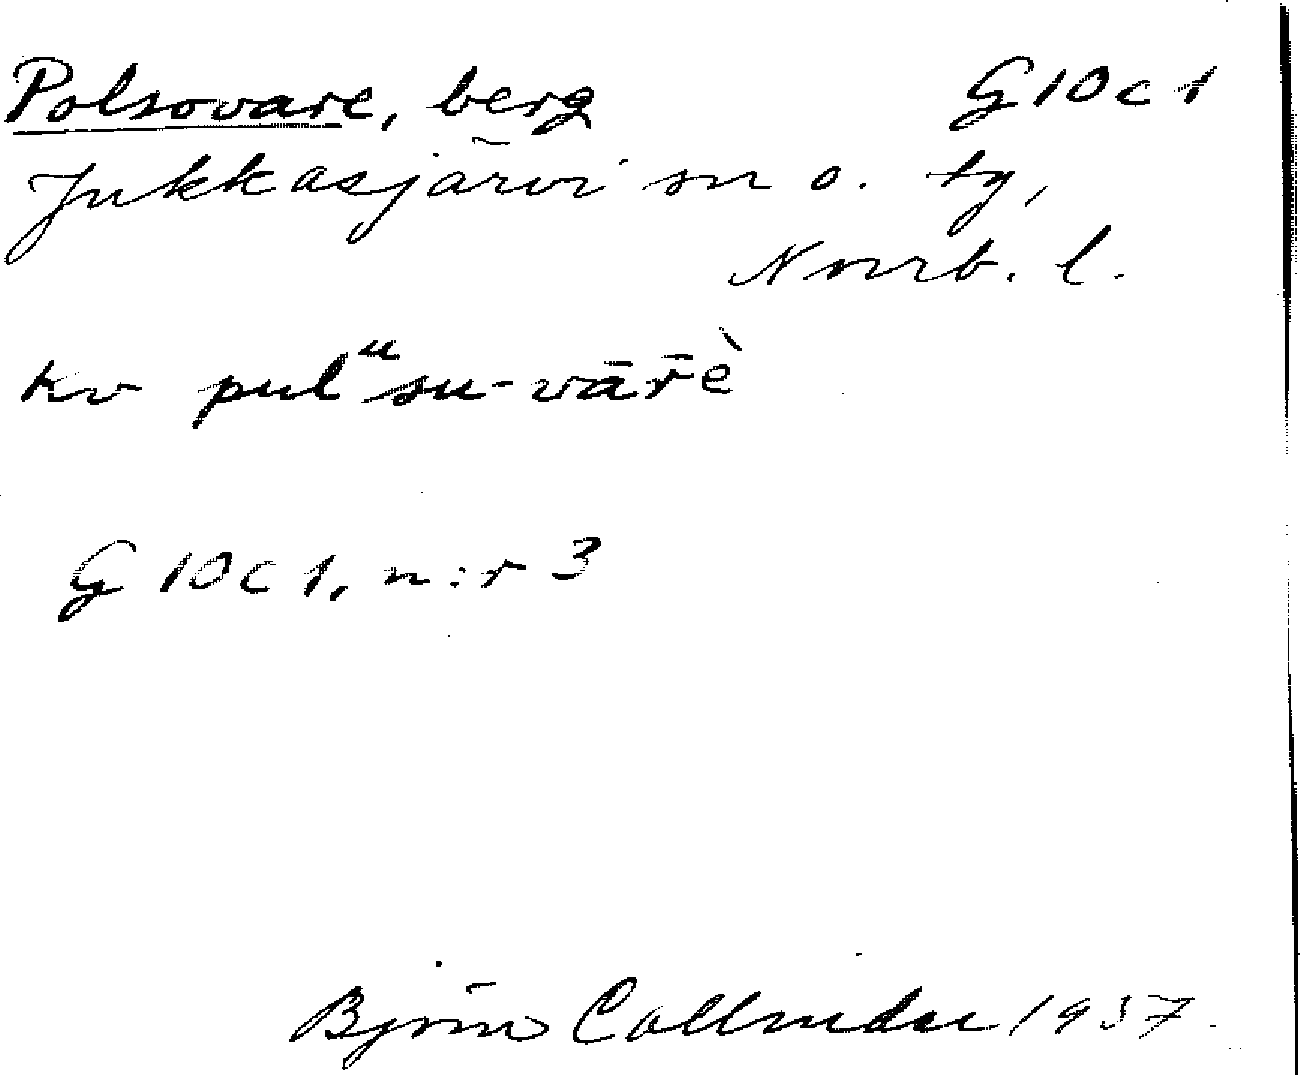 Polsovare, berg G10c1
Jukkasjärvi sn o. tg,
Norrb. l.
kv pulᵘsu-vār̄è
G 10 c 1, n:r 3
Björn Collinder 1937.